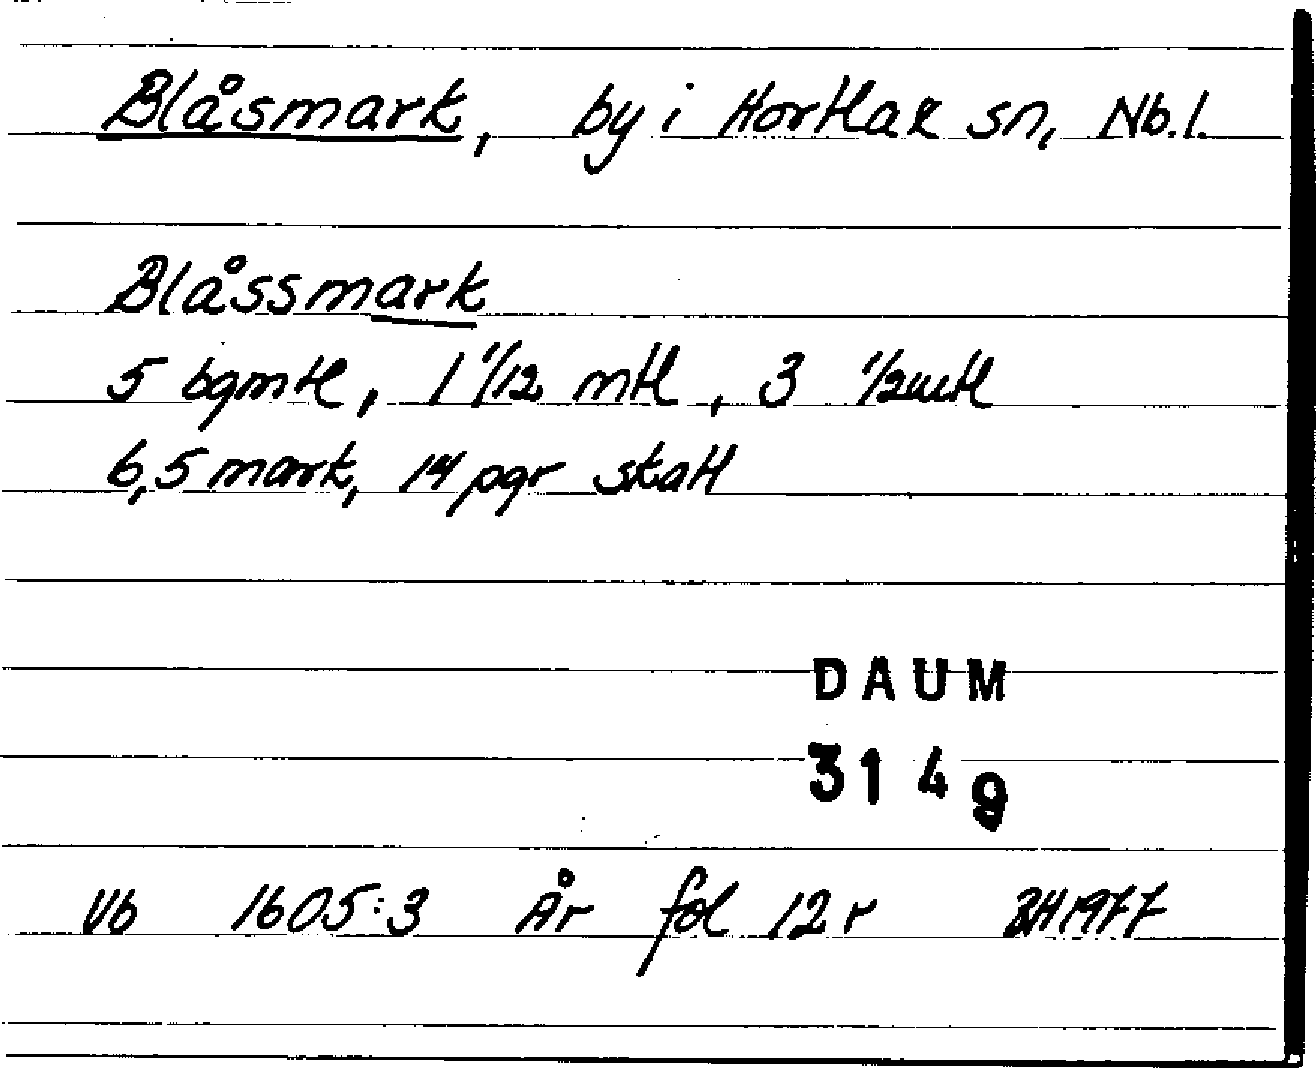 Blåsmark, by i Hortlax sn, Nb.l.
Blåssmark
5 bgmtl, 1 1/12 mtl, 3 1/2mtl
6,5 mark, 14 pgr skatt
DAUM
3149
Vb 1605:3 År fol 12 r BH 1977